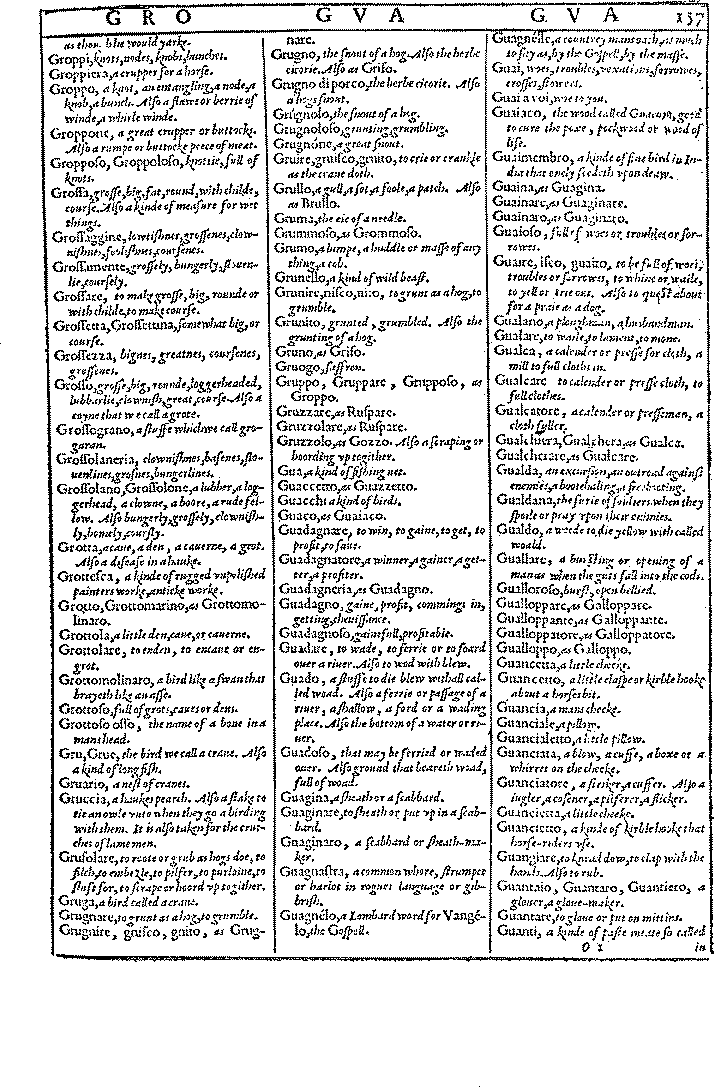 G R O
G V A
G V A 157
as thou. blie would yarke.
Groppi, knots, nodes, knobs, bunches.
Groppiera, a crupper for a horse.
Groppo, a knot, an entangling, a node, a
knob, a bunch. Also a flawe or berrie of
winde, a whirle winde.
Groppone, a great crupper or buttocke.
Also a rumpe or buttocke piece of meat.
Gropposo, Groppoloso, knottie, full of
knots.
Grossa, grosse, big, fat, round, with childe,
course. Also a kinde of measure for wet
things.
Grossaggine, lowtishnes, grossenes, clow-
nishnes, foolishnes, coursenes.
Grossamente, grossely, bungerly, slouen-
lie, coursely.
Grossare, to make grosse, big, rounde or
with childe, to make course.
Grossetta, Grossettuna, somewhat big, or
course.
Grossezza, bignes, greatnes, coursenes,
grossenes.
Grosso, grosse, big, rounde, loggerheaded,
lubbarlie, clownish, great, course. Also a
coyne that we call a grote.
Grossograno, a stuffe which we call gro-
garan.
Grossolaneria, clownishnes, basenes, slo-
uenlines, grosnes, bungerlines.
Grossolano, Grossolone, a lubber, a log-
gerhead, a clowne, a boore, a rude fel-
low. Also bungerly, grossely, clownish-
ly, homely, coursly.
Grotta, a caue, a den, a cauerne, a grot.
Also a disease in a hauke.
Grottesca, a kinde of rugged vnpolished
painters worke, anticke worke.
Grotto, Grottomarino, as Grottomo-
linaro.
Grottola, a little den, caue, or cauerne.
Grottolare, to enden, to encaue or en-
grot.
Grottomolinaro, a bird like a swan that
brayeth like an asse.
Grottoso, full of grots, caues or dens.
Grottoso osso, the name of a bone in a
mans head.
Gru, Grue, the bird we call a crane. Also
a kind of long fish.
Gruario, a nest of cranes.
Gruccia, a haukes pearch. Also a stake to
tie an owle vnto when they go a birding
with them. It is also taken for the crut-
ches of lame men.
Grufolare, to roote or grub as hogs doe, to
filch, to embezle, to pilfer, to purloine, to
shift for, to scrape or hoord vp together.
Gruga, a bird called a crane.
Grugnare, to grunt as a hog, to grumble.
Grugnire, gnisco, gnito, as Grug-
nare.
Grugno, the snout of a hog. Also the herbe
cicorie. Also as Grifo.
Grugno di porco, the herbe cicorie. Also
a hogs snout.
Grugnolo, the snout of a hog.
Grugnoloso, grunting, grumbling.
Grugnóne, a great snout.
Gruire, gruisco, gruito, to crie or crankle
as the crane doth.
Grullo, a gull, a sot, a foole, a patch. Also
as Brullo.
Gruma, the eie of a needle.
Grummoso, as Grommoso.
Grumo, a lumpe, a huddle or masse of any
thing, a cob.
Grunello, a kind of wild beast.
Grunire, nisco, nito, to grunt as a hog, to
grumble.
Grunito, grunted, grumbled. Also the
grunting of a hog.
Gruno, as Grifo.
Gruogo, saffron.
Gruppo, Gruppare, Grupposo, as
Groppo.
Gruzzare, as Ruspare.
Gruzzolare, as Ruspare.
Gruzzolo, as Gozzo. Also a scraping or
hoording vp together.
Gua, a kind of fishing net.
Guaccetto, as Guazzetto.
Guacchi a kind of birds.
Guaco, as Guaiaco.
Guadagnare, to win, to gaine, to get, to
profit, to saue.
Guadagnatore, a winner, a gainer, a get-
ter, a profiter.
Guadagneria, as Guadagno.
Guadagno, gaine, profit, commings in,
getting, cheuissance.
Guadagnoso, gainfull, profitable.
Guadare, to wade, to ferrie or to foard
ouer a riuer. Also to wod with blew.
Guado, a stuffe to die blew withall cal-
led woad. Also a ferrie or passage of a
riuer, a shallow, a ford or a wading
place. Also the bottom of a water or ri-
uer.
Guadoso, that may be ferried or waded
ouer. Also ground that beareth woad,
full of woad.
Guagina, a sheath or a scabbard.
Guaginare, to sheath or put vp in a scab-
bard.
Guaginaro, a scabbard or sheath-ma-
ker.
Guagnastra, a common whore, strumpet
or harlot in rogues language or gib-
brish.
Guagnélo, a Lombard word for Vangé-
lo, the Gospell.
Guagnélle, a countrey mans oath, as much
to say as, by the Gospell, by the masse.
Guai, woes, troubles, vexations, sorrowes,
crosses,
Guai a voi, woe to you.
Guaiaco, the wood called Guacum, good
to cure the poxe, pockwood or wood of
life.
Guaimembro, a kinde of fine bird in In-
dia that onely feedeth vpon deaw.
Guaina, as Guagina.
Guainare, as Guaginare.
Guainaro, as Guaginaro.
Guaioso, full of woes or troubles or sor-
rowes.
Guaire, isco, guaito, to be full of woes,
troubles or sorrowes, to whine or waile,
to yell or crie out. Also to quest about
for a praie as a dog.
Gualano, a ploughman, a husbandman.
Gualare, to waile, to lament, to mone.
Gualca, a calender or presse for cloth, a
mill to full cloth in.
Gualcare to calender or presse cloth, to
full clothes.
Gualcatore, a calender or presseman, a
cloth fuller.
Gualchiera, Gualchera, as Gualca.
Gualcherare, as Gualcare.
Gualda, an excursion, an outroad against
enemies, a boothaling, a freebooting.
Gualdana, the furie of souldiers when they
spoile or pray vpon their enimies.
Gualdo, a weede to die yellow with called
woald.
Guallare, a bursting or opening of a
man as when the guts fall into the cods.
Gualloroso, burst, open bellied.
Gualloppare, as Galloppare.
Gualloppante, as Galloppante.
Gualloppatore, as Galloppatore.
Gualloppo, as Galloppo.
Guancetta, a little cheeke.
Guancetto, a little claspe or kirble hooke
about a horses bit.
Guancia, a mans cheeke.
Guanciale, a pillow.
Guancialetto, a little pillow.
Guanciata, a blow, a cuffe, a boxe or a
whirret on the cheeke.
Guanciatore, a striker, a cuffer. Also a
iugler, a cosener, a pilferer, a slicker.
Guancietta, a little cheeke.
Guancietto, a kinde of kirble hooke that
horse-riders vse.
Guangiare, to knead dow, to clap with the
hands. Also to rub.
Guantaio, Guantaro, Guantiero, a
glouer, a gloue-maker.
Guantare, to gloue or put on mittins.
Guanti, a kinde of paste meate so called
O 3 in